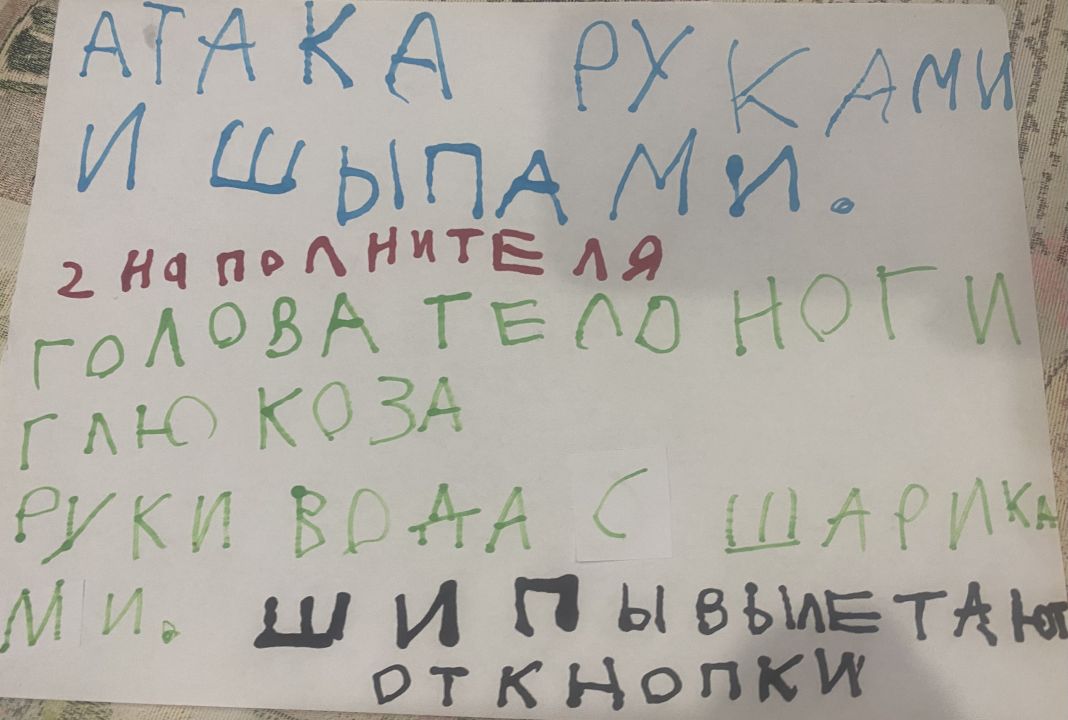 АТАКА РУКАМИ
И ШЫПАМИ.
2 НАПОЛНИТЕЛЯ
ГОЛОВА ТЕЛО НОГИ
ГЛЮКОЗА
РУКИ ВОДА С ШАРИКА
МИ. ШИПЫ ВЫЛЕТАЮТ
ОТ КНОПКИ